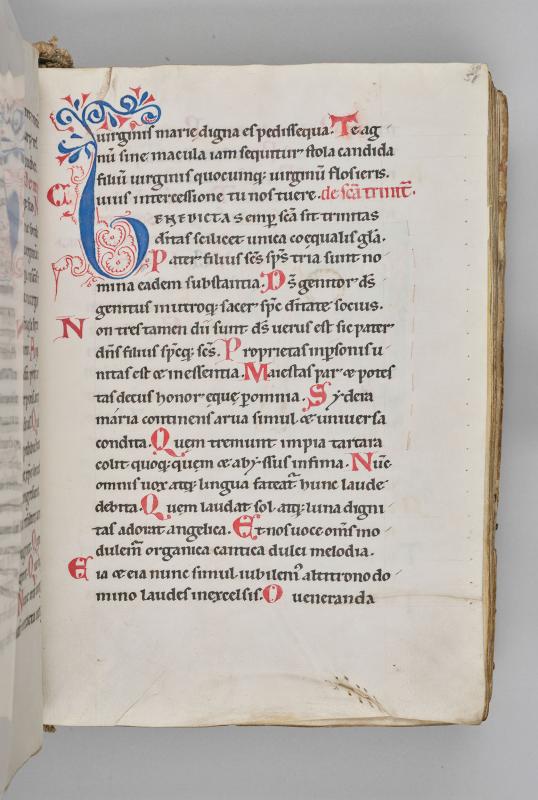 uirginis marie digna es pedissequa. Te ag
nū sine macula iam sequitur stola candida
filiū uirginis quocumq; uirginū flos ieris.
Cuius intercessione tu nos tuere. de scā trinit̄.
BENEDICTA semp scā sit trinitas
ditas scilicet unica coequalis glā.
Pater filius scs sps tria sunt no
mina eadem substantia. Ds genitor ds
genitus in utroq; sacer spc ditate socius.
Non tres tamen dii sunt ds uerus est sic pater
dns filius spcq; scs. Proprietas in psonis u
nitas est & in essentia. Maiestas par & potes
tas decus honor eque p omnia. Sydera
maria continens arua simul & uniuersa
condita. Quem tremunt impia tartara
colit quoq; quem & abyssus infima. Nūc
omnis uox atq; lingua fateat̄ hunc laude
debita. Quem laudat sol atq; luna digni
tas adorat angelica. Et nos uoce om̄s mo
dulem̄ organica cantica dulci melodia.
Eia & eia nunc simul iubilem; altitrono do
mino laudes in excelsis. O ueneranda